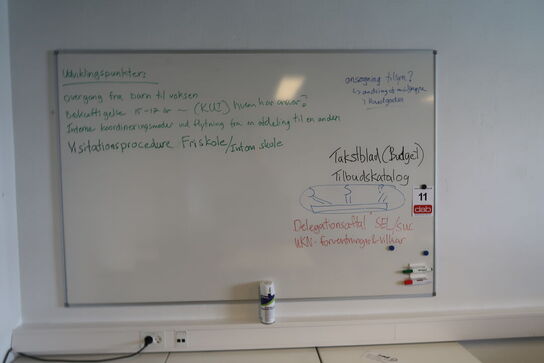 Udviklingspunkter:
overgang fra barn til voksen
Beskæftigelse 15-17 år ~ (KUI) hvem har ansvar?
Interne koordineringsmøder ved flytning fra en afdeling til en anden
Visitationsprocedure Friskole/Intern skole
ansøgning tilsyn?
↳ ændring af målgruppe
Takstblad (Budget)
Tilbudskatalog
11
dab
Delegationsaftal SEL/SUL
UKN - forventninger & vilkår